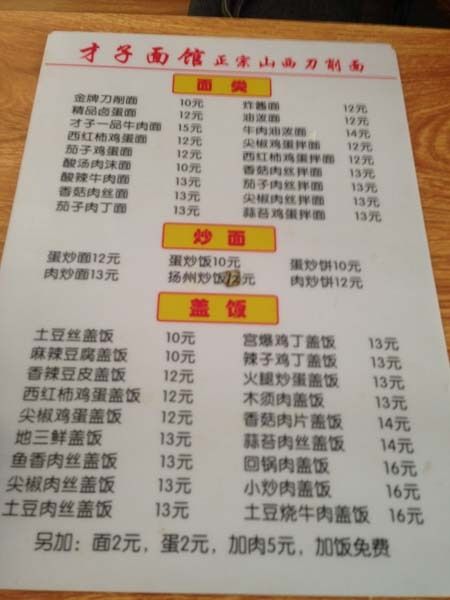 才子面馆 正宗山西刀削面
面类
金牌刀削面 10元
精品卤蛋面 12元
才子一品牛肉面 15元
西红柿鸡蛋面 12元
茄子鸡蛋面 12元
酸汤肉沫面 13元
酸辣牛肉面 13元
香菇肉丝面 13元
茄子肉丁面 13元
炸酱面 12元
油泼面 12元
牛肉油泼面 14元
尖椒鸡蛋拌面 12元
西红柿鸡蛋拌面 12元
香菇肉丝拌面 13元
茄子肉丝拌面 13元
尖椒肉丝拌面 13元
蒜苔鸡蛋拌面 13元
炒面
蛋炒面12元 蛋炒饭10元 蛋炒饼10元
肉炒面13元 扬州炒饭12元 肉炒饼12元
盖饭
土豆丝盖饭 10元
麻辣豆腐盖饭 10元
香辣豆皮盖饭 12元
西红柿鸡蛋盖饭 12元
尖椒鸡蛋盖饭 12元
地三鲜盖饭 13元
鱼香肉丝盖饭 13元
尖椒肉丝盖饭 13元
土豆肉丝盖饭 13元
宫爆鸡丁盖饭 13元
辣子鸡丁盖饭 13元
火腿炒蛋盖饭 13元
木须肉盖饭 13元
香菇肉片盖饭 14元
蒜苔肉丝盖饭 14元
回锅肉盖饭 16元
小炒肉盖饭 16元
土豆烧牛肉盖饭 16元
另加：面2元，蛋2元，加肉5元，加饭免费